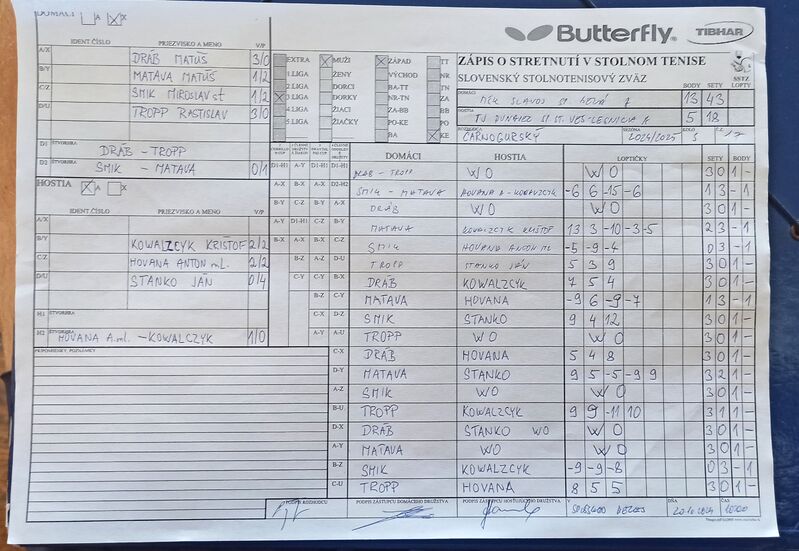 DOMÁCI A X
IDENT ČÍSLO PRIEZVISKO A MENO V/P
A/X DRÁB MATÚŠ 3/0
B/Y MAŤAVA MATÚŠ 1/2
C/Z SMIK MIROSLAV st 1/2
D/U TROPP RASTISLAV 3/0
D1 ŠTVORHRA DRÁB - TROPP
D2 ŠTVORHRA SMIK - MAŤAVA 0/1
HOSTIA A X
IDENT ČÍSLO PRIEZVISKO A MENO V/P
A/X
B/Y KOWALZCYK KRIŠTOF 2/2
C/Z HOVANA ANTON ml. 2/2
D/U STANKO JÁN 0/4
H1 ŠTVORHRA
H2 ŠTVORHRA HOVANA A.ml. - KOWALCZYK 1/0
PRIPOMIENKY, POZNÁMKY
Butterfly TIBHAR
EXTRA MUŽI ZÁPAD TT
1.LIGA ŽENY VÝCHOD NR
2.LIGA DORCI BA-TT TN
3.LIGA DORKY NR-TN ZA
4.LIGA ŽIACI ZA-BB BB
5.LIGA ŽIAČKY PO-KE PO
BA KE
ZÁPIS O STRETNUTÍ V STOLNOM TENISE
SLOVENSKÝ STOLNOTENISOVÝ ZVÄZ SSTZ
BODY SETY LOPTY
DOMÁCI 13 43
HOSTIA 5 18
ROZHODCA ČARNOGURSKÝ SEZÓNA 2024/2025 KOLO 5
DOMÁCI HOSTIA LOPTIČKY SETY BODY
DRÁB - TROPP WO WO 3 0 1 -
SMIK - MAŤAVA HOVANA A - KOWALCZYK -6 6 -15 -6 1 3 - 1
DRÁB WO WO 3 0 1 -
MAŤAVA KOWALCZYK KRIŠTOF 13 3 -10 -3 -5 2 3 - 1
SMIK HOVANA ANTON ML -5 -9 -4 0 3 - 1
TROPP STANKO JÁN 5 3 9 3 0 1 -
DRÁB KOWALZCYK 7 5 4 3 0 1 -
MAŤAVA HOVANA -9 6 -9 -7 1 3 - 1
SMIK STANKO 9 4 12 3 0 1 -
TROPP WO WO 3 0 1 -
DRÁB HOVANA 5 4 8 3 0 1 -
MAŤAVA STANKO 9 5 -5 -9 9 3 2 1 -
SMIK WO WO 3 0 1 -
TROPP KOWALCZYK 9 9 -11 10 3 1 1 -
DRÁB STANKO WO WO 3 0 1 -
MAŤAVA WO WO 3 0 1 -
SMIK KOWALCZYK -9 -9 -8 0 3 - 1
TROPP HOVANA 8 5 5 3 0 1 -
PODPIS ROZHODCU PODPIS ZÁSTUPCU DOMÁCEHO DRUŽSTVA PODPIS ZÁSTUPCU HOSŤUJÚCEHO DRUŽSTVA V DŇA 20.10.2024 ČAS 10:00